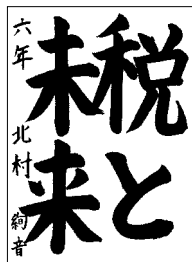 税と
未来
六年 北村 絢音